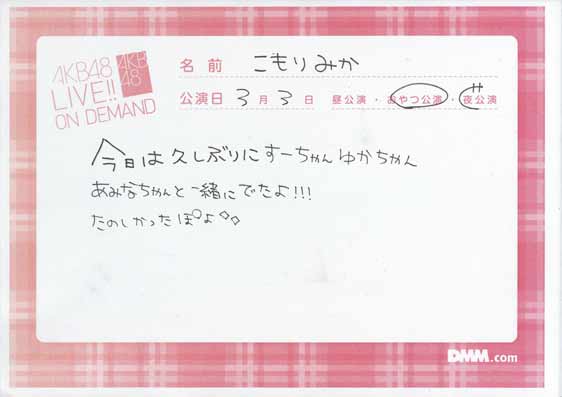 AKB48
LIVE!!
ON DEMAND
AKB
48
名前 こもりみか
公演日 3月3日 昼公演・おやつ公演・夜公演
今日は久しぶりにすーちゃんゆかちゃん
あみなちゃんと一緒にでたよ!!!
たのしかったぽよ
DMM.com